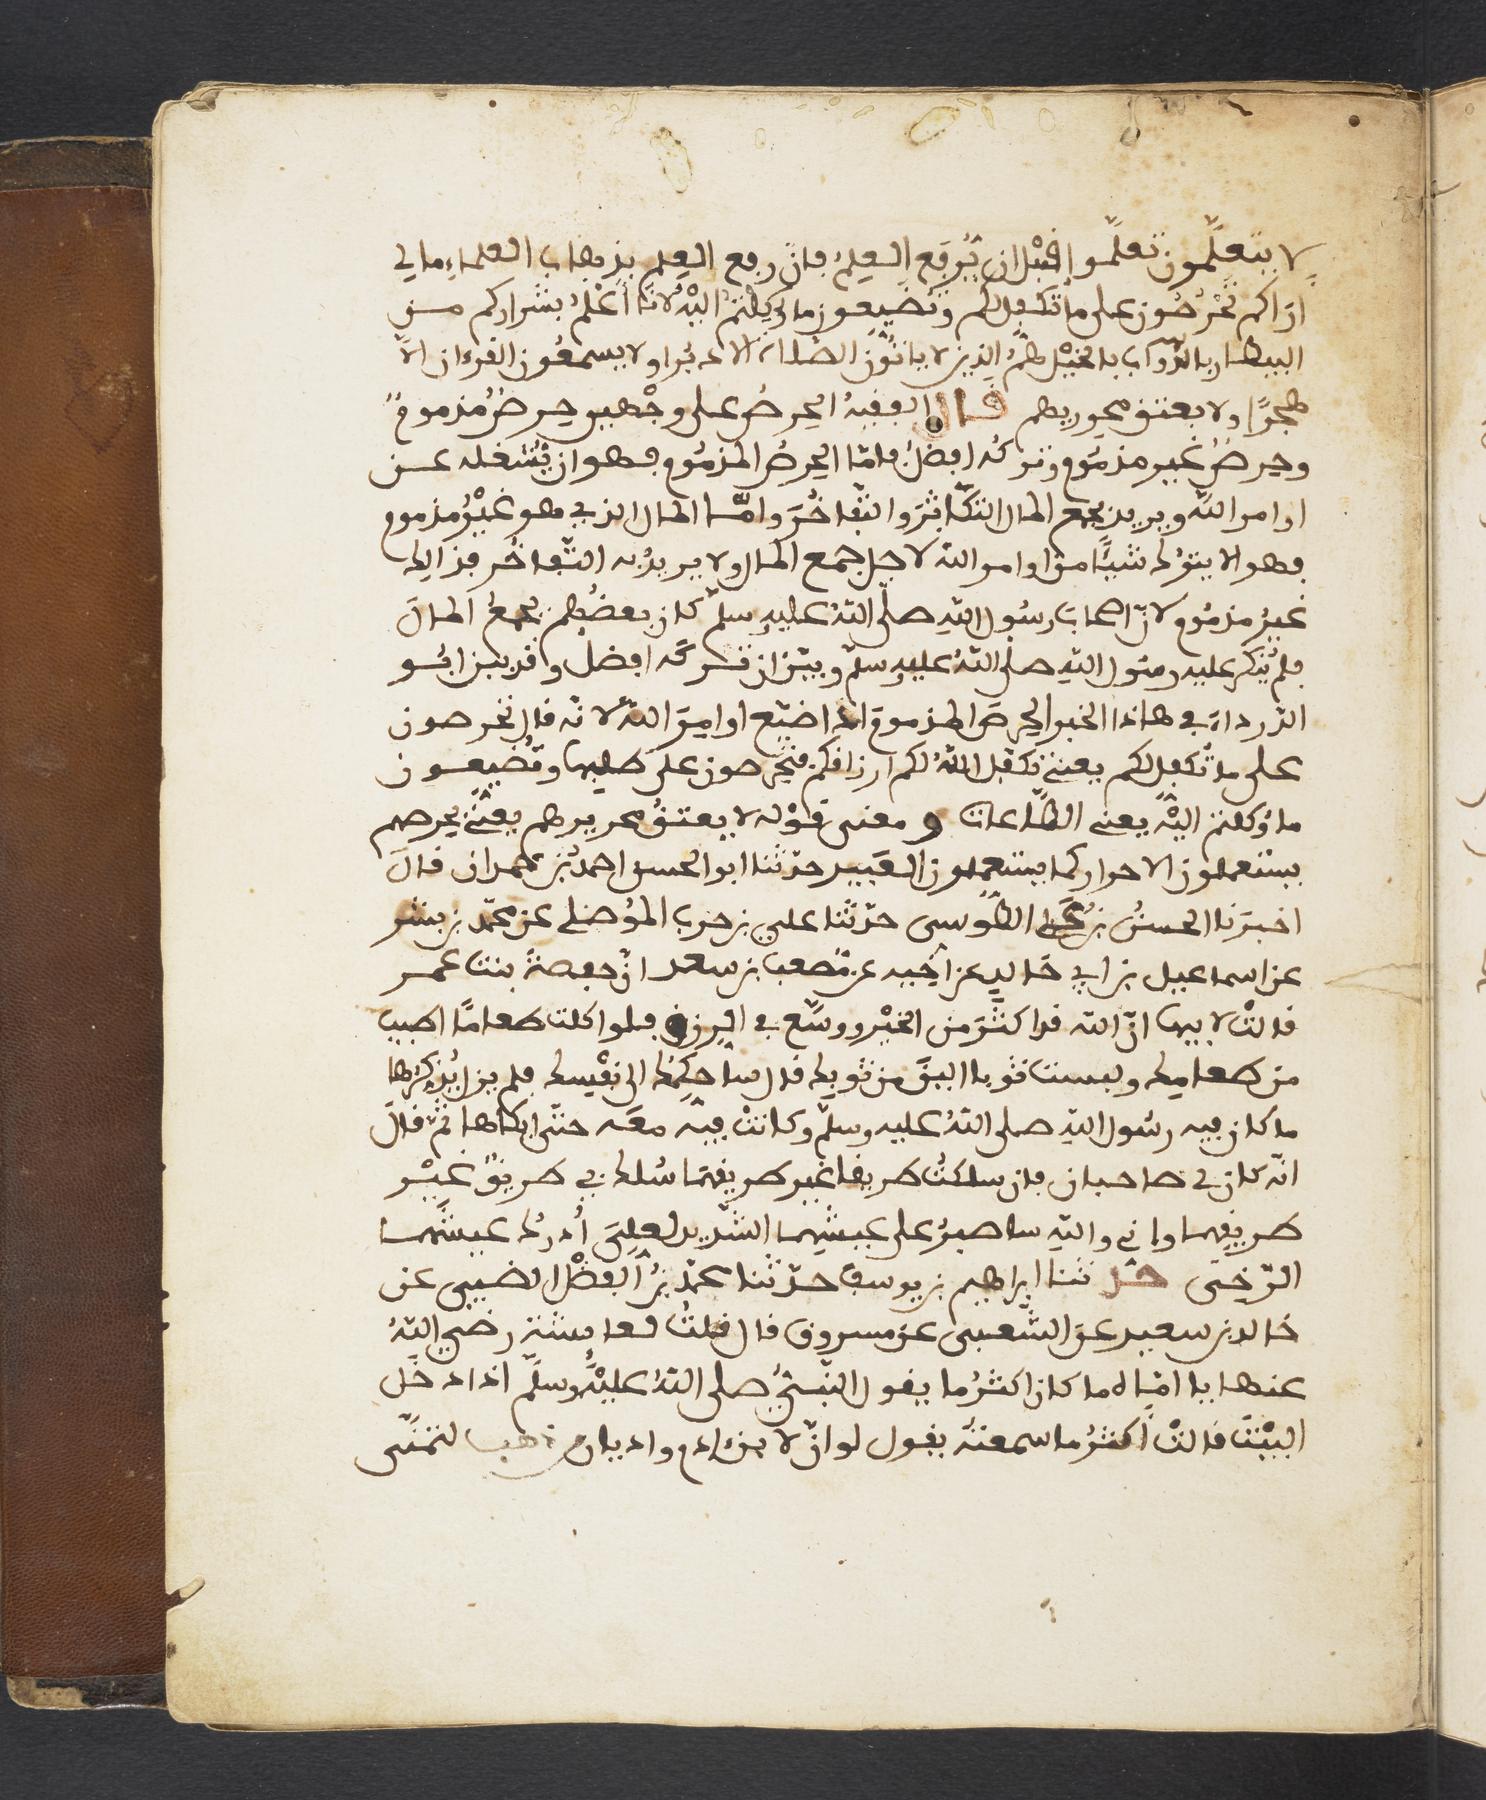 لا يتعلّمون تعلّموا قبل ان يُّرفع العلمُ فانّ رفع العلم بذهاب العلماء مالي
اراكم تحرُصُون على ما تكفل لكم وتُضيعون ما وُكِلْتمُ اليْه لانا أعْلمُ بشراركم من
البيطار بالدّوآب بالخيْل همُ الذين لا ياتُوْن الصّلاة الا دبُرا ولا يسمعُون القرءان الاّ
هجرًا ولا يعتق محرريهم قال الفقيهُ الحرصُ على وجْهين حِرصٌ مذمومٌ
وحِرصٌ غير مذمُوم وتركه افضلُ فامّا الحِرصُ المذمُوم فهو ان يُّشغله عن
اوامر اللّه ويريد بجمع المال التكّاثرَ والتّفاخُرَ وامّا المال الذي هو غيْرُ مذموم
فهو الا يترُك شيًّا من اوامر اللّه لاجل جمع المال ولا يريدُ به التّفاخُر فذالك
غيرُ مذمُوم لانّ اصحابَ رسُول اللّهِ صلّى اللّهُ عليه وسلّم كان بعضُهم يجمعُ المالَ
فلم يُنكر عليه رسُول اللّهِ صلى اللّهُ عليهِ وسلّم وبيّن ان تركَه افضل وقد بين ابُو
الدّرداءَ في هاذا الخبر الحِرصَ المذمومَ اذا ضيّع اوامِرَ اللّه لانّه قال تحرصون
على ما تُكفل لكم يعني تكفّل اللّهُ لكم ارزاقكم فتحرصون على طلبها وتُضيعون
ما وُكلتم اليْهً يعني الطّاعات ومعنى قوْله لا يعتقُ محرريهم يعْني بحرصهم
يستعملون الاحرار كما يستعملون العَبيد حدّثنا ابوا لحسن احمدُ بن حمدان قالَ
اخبرَنا الحسنُ بن الطُّوسى حدّثنا علي بن حرب المؤصلي عن محمّد بن بشر
عن اسماعيل بن ابي خَالدٍ عن اخِيه عن مّصعب بن سعد انّ حفصةَ بنت عمر
قالتْ لابيها انّ اللّه قد اكثرَ من الخيْر ووسّع في الرزق فلو اكلت طعامًا اطيب
من طعامِك ولبست ثوبا الينَ من ثوبِك قال ساحكِمُك الى نفْسِك فلم يزل يُذكّرها
ما كان فيه رسُول اللّهِ صلى اللّهُ عليه وسلّم وكانتْ فيهِ معَه حتّى ابكاها ثمّ قالَ
انّه كان لي صاحبان فان سلكتُ طريقا غير طريقهمَا سُلك بي طريقٌ غيْر
طريقهما وانّي واللّهِ ساصبرُ على عيشِهما الشّديد لعلي أُدركُ عيشَهما
الرّخىّ حدّثنا ابراهيم بن يوسف حدّثنا محمّد بن الفضْل الضبى عن
خَالد بن سعيد عن الشّعبى عن مسروق قال قلتُ لعايشة رضي اللّهُ
عنها يا امّاه ما كان اكثرُ ما يقول النّبيّ صلى اللّهُ عليْه وسلّم اذا دخَل
البيْتَ قالتْ أكثرُ ما سمعتهُ يقول لو انّ لابن ءادم واديان من ذهب لتمنّى